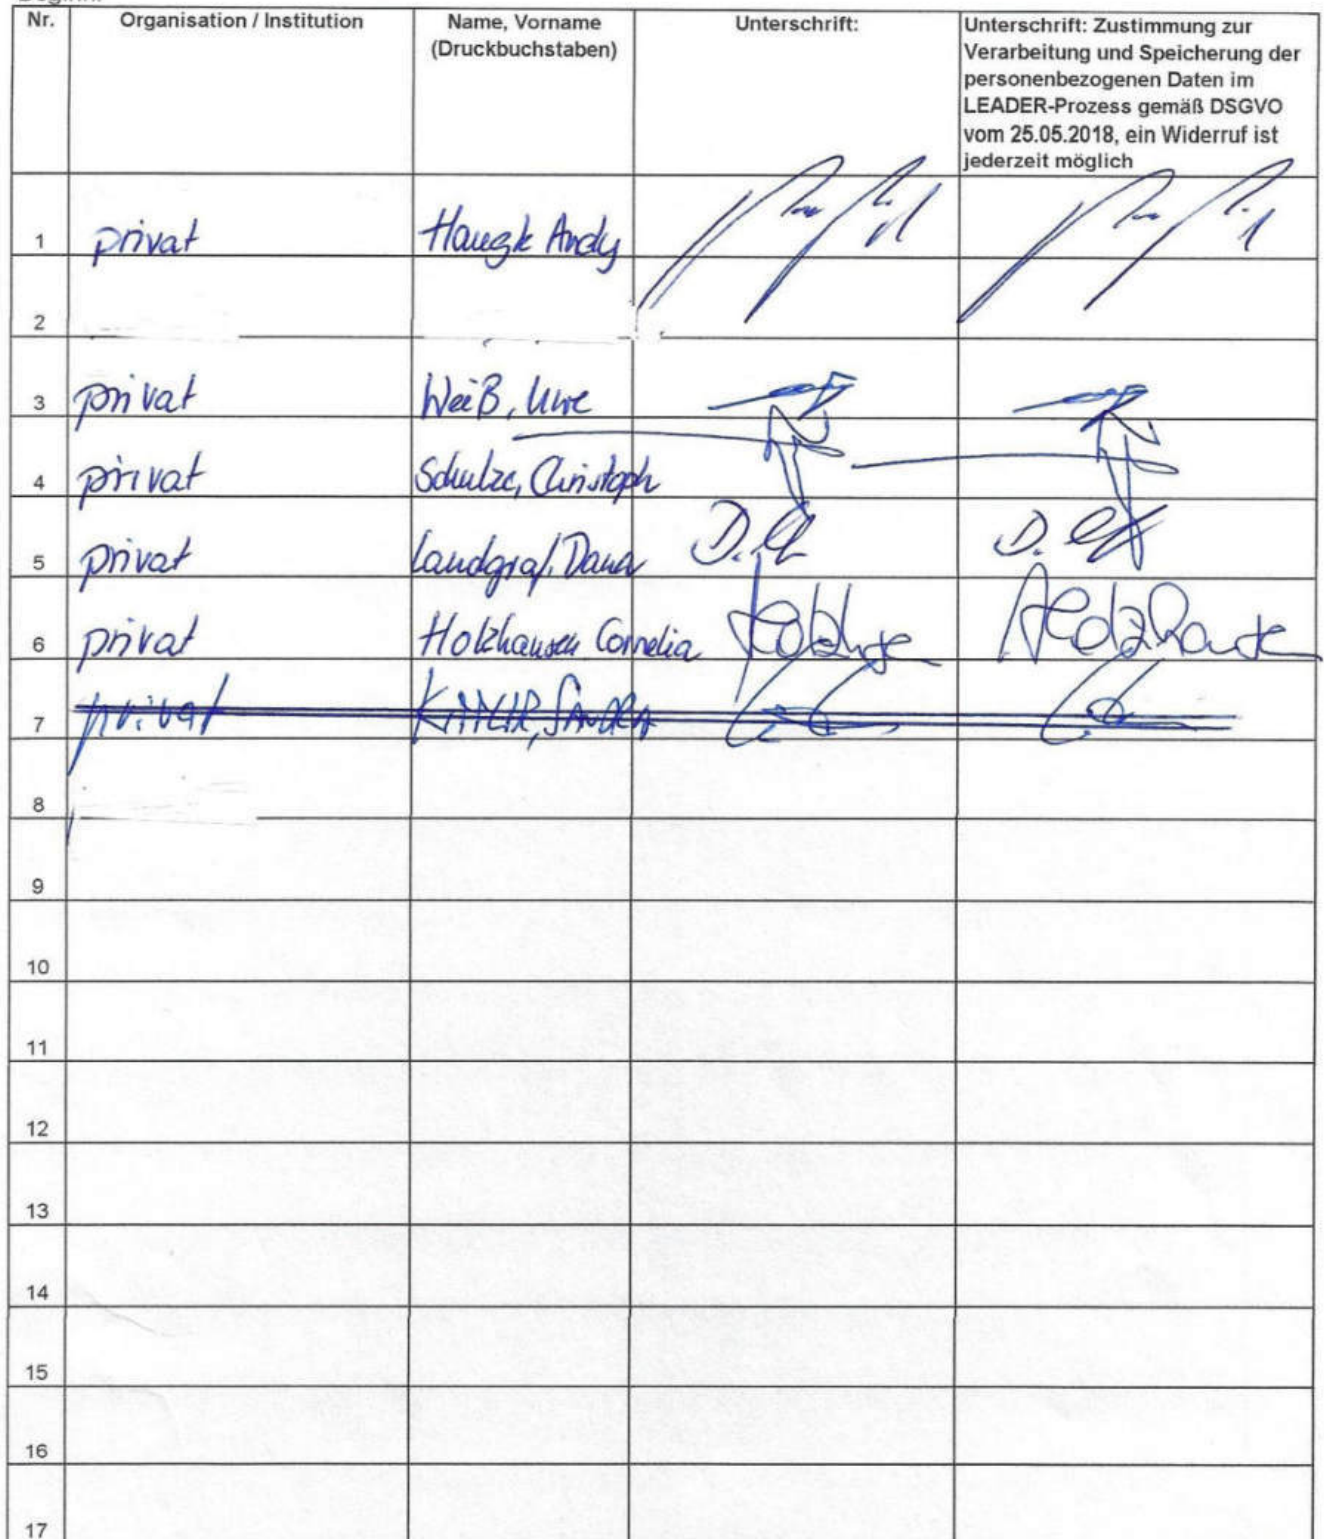 Nr. Organisation / Institution Name, Vorname (Druckbuchstaben) Unterschrift: Unterschrift: Zustimmung zur Verarbeitung und Speicherung der personenbezogenen Daten im LEADER-Prozess gemäß DSGVO vom 25.05.2018, ein Widerruf ist jederzeit möglich
1 privat Haugk Andy
2
3 privat Weiß, Uwe
4 privat Schulze, Christoph
5 privat Landgraf, Dana
6 privat Holzhausen Cornelia
7 privat
8
9
10
11
12
13
14
15
16
17